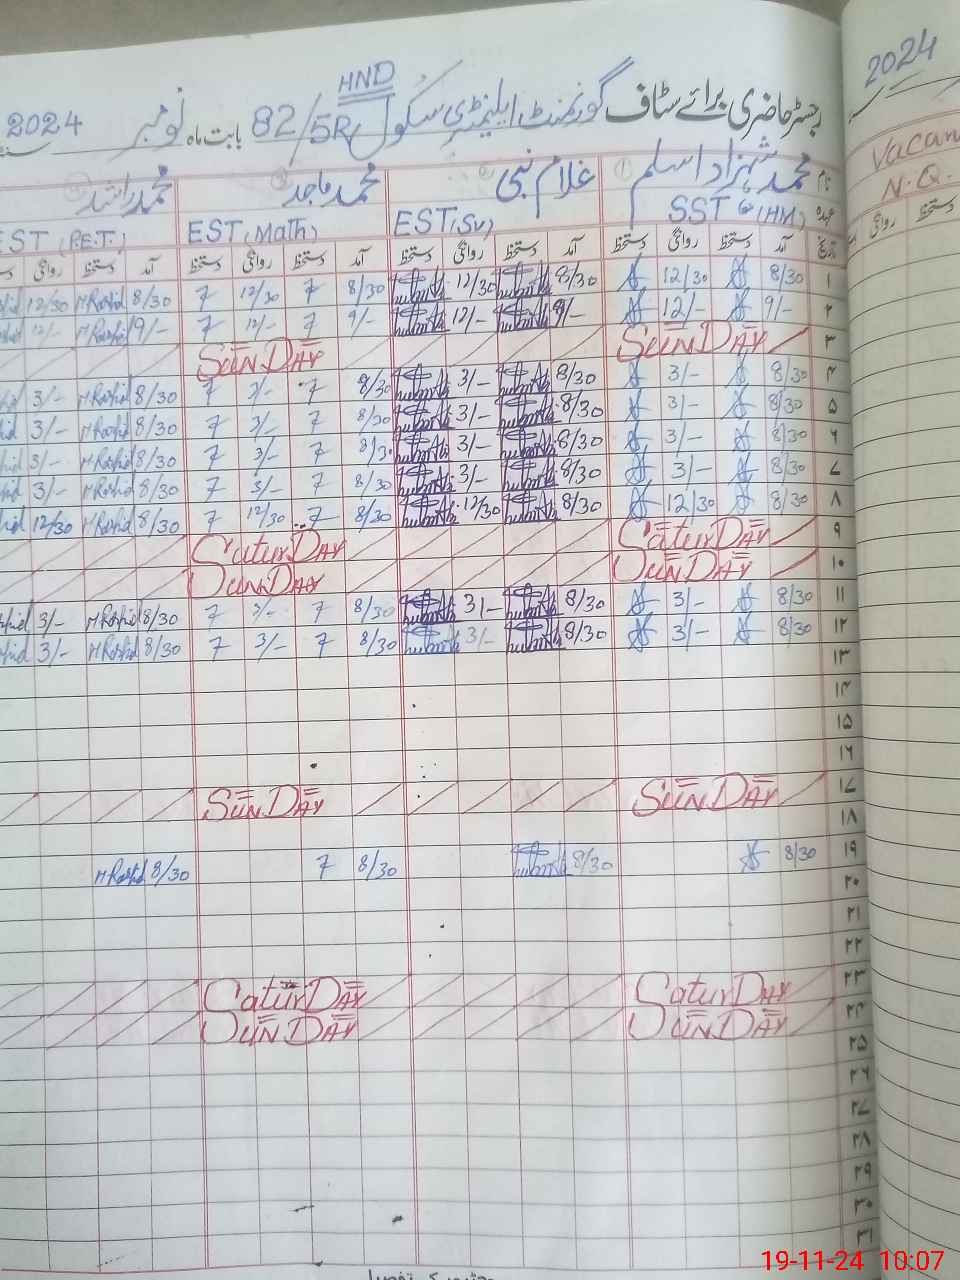 2024
HND
رجسٹر حاضری برائے سٹاف گورنمنٹ ایلیمنٹری سکول 82/5R بابت ماہ نومبر 2024
Vacan
N.Q.
نام محمد شہزاد اسلم غلام نبی محمد ماجد محمد راشد
عہدہ SST (HM) EST (Sv) EST (Math) EST (P.E.T.)
تاریخ آمد دستخط روانگی دستخط آمد دستخط روانگی دستخط آمد دستخط روانگی دستخط آمد دستخط روانگی
روانگی دستخط
۱ 8/30 12/30 8/30 12/30 8/30 7 12/30 7 8/30 M Rashid 12/30
۲ 9/- 12/- 9/- 12/- 9/- 7 12/- 7 9/- M Rashid 12/-
۳ SUNDAY SUNDAY
۴ 8/30 3/- 8/30 3/- 8/30 7 3/- 7 8/30 M Rashid 3/-
۵ 8/30 3/- 8/30 3/- 8/30 7 3/- 7 8/30 M Rashid 3/-
۶ 8/30 3/- 8/30 3/- 8/30 7 3/- 7 8/30 M Rashid 3/-
۷ 8/30 3/- 8/30 3/- 8/30 7 3/- 7 8/30 M Rashid 3/-
۸ 8/30 12/30 8/30 12/30 8/30 7 12/30 7 8/30 M Rashid 12/30
۹ SaturDAY SaturDAY
۱۰ SUNDAY SUNDAY
۱۱ 8/30 3/- 8/30 3/- 8/30 7 3/- 7 8/30 M Rashid 3/-
۱۲ 8/30 3/- 8/30 3/- 8/30 7 3/- 7 8/30 M Rashid 3/-
۱۳
۱۴
۱۵
۱۶
۱۷ SUNDAY SUNDAY
۱۸
۱۹ 8/30 8/30 8/30 7 8/30 M Rashid
۲۰
۲۱
۲۲
۲۳ SaturDAY SaturDAY
۲۴ SUNDAY SUNDAY
۲۵
۲۶
۲۷
۲۸
۲۹
۳۰
۳۱
19-11-24 10:07